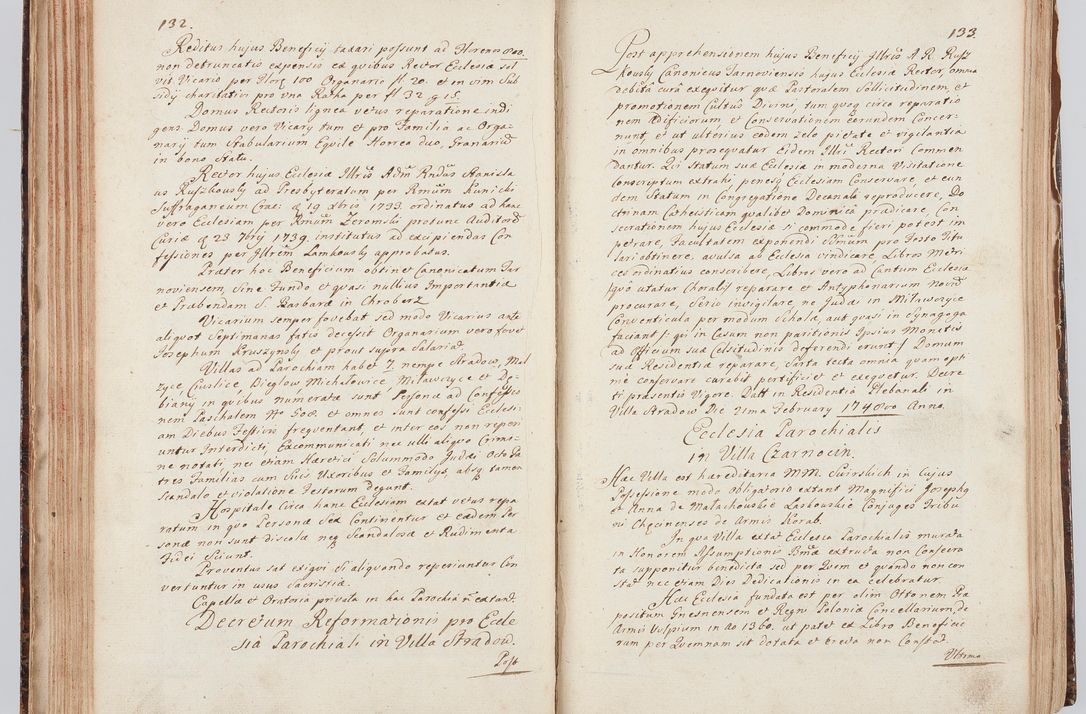 132.
Reditus hujus Beneficij taxari possunt ad Florenos 800.
non detruncatis expensis ex quibus Rector Ecclesiæ sol
vit Vicario per Flor: 100 Organario fl. 20. et in vim Sub
sidij charitativi pro una Ratha per fl 32 g 15.
Domus Rectoris lignea vetus reparatione indi
gens. Domus vero Vicarij tum et pro Familia ac Orga-
narij tum Stabularium Equile Horrea duo, Granariũ
in bono statu.
Rector hujus Ecclesiæ Illris Adm Rndus Stanisla
us Ruszkowsky ad Presbyteratum per Rmum Kunicki
Suffraganeum Crac: d 19 Xbris 1733. ordinatus ad hanc
vero Ecclesiam per Rmum Zeromski protunc Auditorẽ
Curiæ d 23 7bris 1739 institutus ad excipiendas Con
fessiones per Illrem Lamkowsky approbatus.
Præter hoc Beneficium obtinet Canonicatum Tar
noviensem sine Fundo et quasi nullius Importantiæ
et Præbendam S. Barbaræ in Chroberz
Vicarium semper fovebat sed modo Vicarius ante
aliquot Septimanas fatis decessit Organarium vero fovet
Josephum Kruszynsky et prout supra Salariat
Villas ad Parochiam habet 7. nempe Stradow, Mal
zyce, Ciuslice, Pieglow Michałowice, Mławczyce et Dę-
biany in quibus numeratæ sunt Personæ ad Confessio
nem Paschalem No 600. et omnes sunt confessi Ecclesi-
am Diebus Festivis frequentant, et inter eos non reperi
untur Interdicti, Excommunicati nec ulli aliquo Crimi-
ne notati, nec etiam Hæretici Solummodo Judæi Octo et a
tres Familias cum suis Uxoribus et Familijs, absq tamen
Scandalo et violatione Festorum degunt.
Hospitale circa hanc Ecclesiam extat vetus repa
ratum in quo Personæ Sex Continentur et eædem Per
sonæ non sunt discolæ neq Scandalosæ et Rudimenta
Fidei Sciunt.
Proventus sat exigui Si aliquando reperiuntur Con
vertuntur in usus Sacristiæ.
Capellæ et Oratoria privata in hac Parochia ñ extant.
Decretum Reformationis pro Eccle
sia Parochiali in Villa Stradow.
Post
133
Post apprehensionem hujus Beneficij Illris A R. Rusz
kowsky Canonicus Tarnoviensis hujus Ecclesiæ Rector, omnia
debita cura exequitur quæ Pastoralem Sollicitudinem, et
promotionem Cultus Divini, tum quoq circa reparatio
nem Ædificiorum, et Conservationem eorundem Concer-
nunt, et ut ulterius eodem zelo pietate et vigilantia
in omnibus prosequatur Eidem Illri Rectori Commen
dantur. Qui Statum suæ Ecclesiæ in moderna Visitatione
conscriptum extrahi, penesq Ecclesiam Conservare, et eun
dem Statum in Congregatione Decanali reproducere, Do
ctrinam Catheisticam qualibet Dominica prædicare, Con
secrationem hujus Ecclesiæ si commode fieri potest im
petrare, Facultatem exponendi Ssmum pro Festo Titu
lari obtinere, avulsa ab Ecclesia vindicare, Libros Metri
ces ordinatius conscribere, Libros vero ad Cantum Ecclesiæ
/quo utatur Chorus/ reparare et Antyphonarium Novũ
procurare, Serio invigilare, ne Judæi in Mławczyce
Conventicula per modum Scholæ, aut quasi in Synagoga
faciant /: qui in Casum non paritionis Ipsius Monitis
ad Officium suæ Celsitudinis deferendi erunt:/ Domum
suæ Residentiæ reparare, Sarta tecta omnia quam opti
me conservare curabit perficiet et exequetur. Decre
ti præsentis Vigore. Datt in Residentia Plebanali in
Villa Stradow Die 21ma February 1748vo Anno.
Ecclesia Parochialis
in Villa Czarnocin.
Hæc Villa est hæreditaria MM. Swirskich in Cujus
Possessione modo obligatorio extant Magnifici Josephg
et Anna de Małachowskie Laskowskie Conjuges Tribu
ni Chęcinenses de Armis Korab.
In qua Villa extat Ecclesia Parochialis murata
in Honorem Assumptionis Bmæ extructa non Consecra
ta supponitur benedicta sed per Quem et quando non con
stat nec etiam Dies Dedicationis in ea celebratur.
Hæc Ecclesia fundata est per olim Ottonem Præ
positum Gnesnensem et Regni Poloniæ Cancellarium, de
Armis Vulpium in Ao 1360. ut patet ex Libro Beneficio
rum per Quemnam sit dotata et erecta non Constat.
Ultima